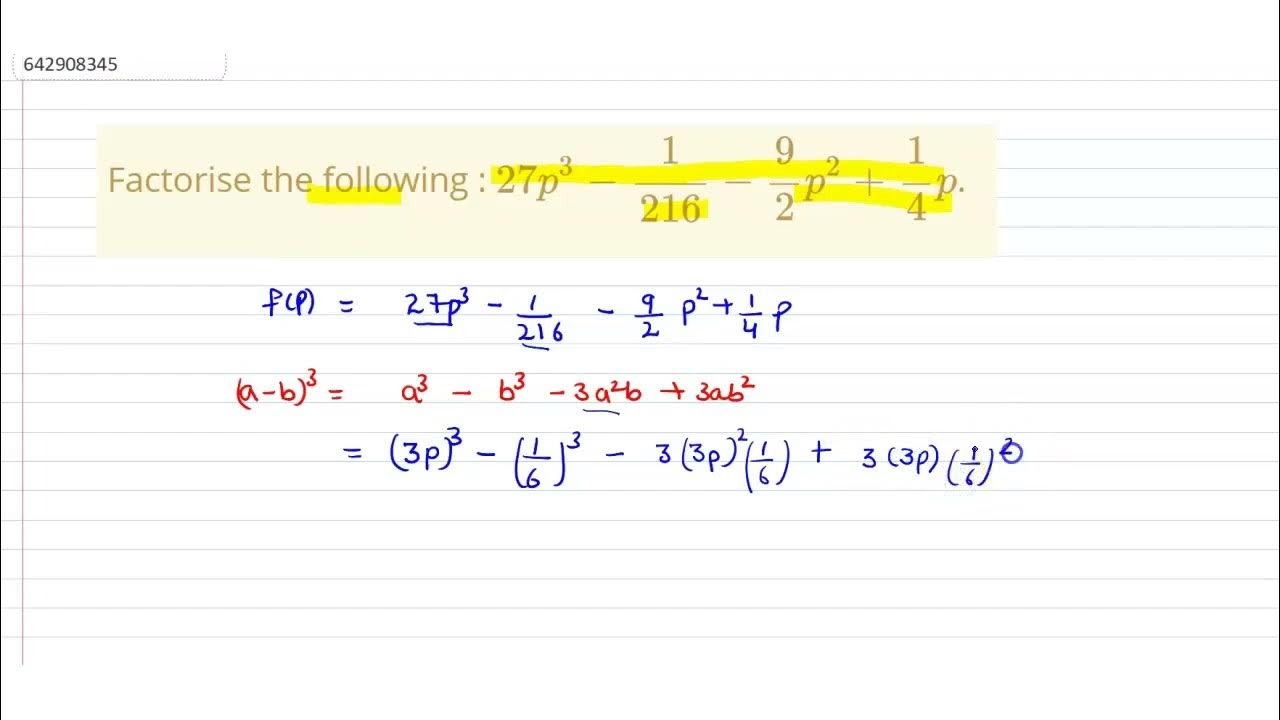 642908345
Factorise the following : 27p³ − 1/216 − 9/2 p² + 1/4 p.
f(p) = 27p³ − 1/216 − 9/2 p² + 1/4 p
(a−b)³ = a³ − b³ − 3a²b + 3ab²
= (3p)³ − (1/6)³ − 3(3p)²(1/6) + 3(3p)(1/6)²